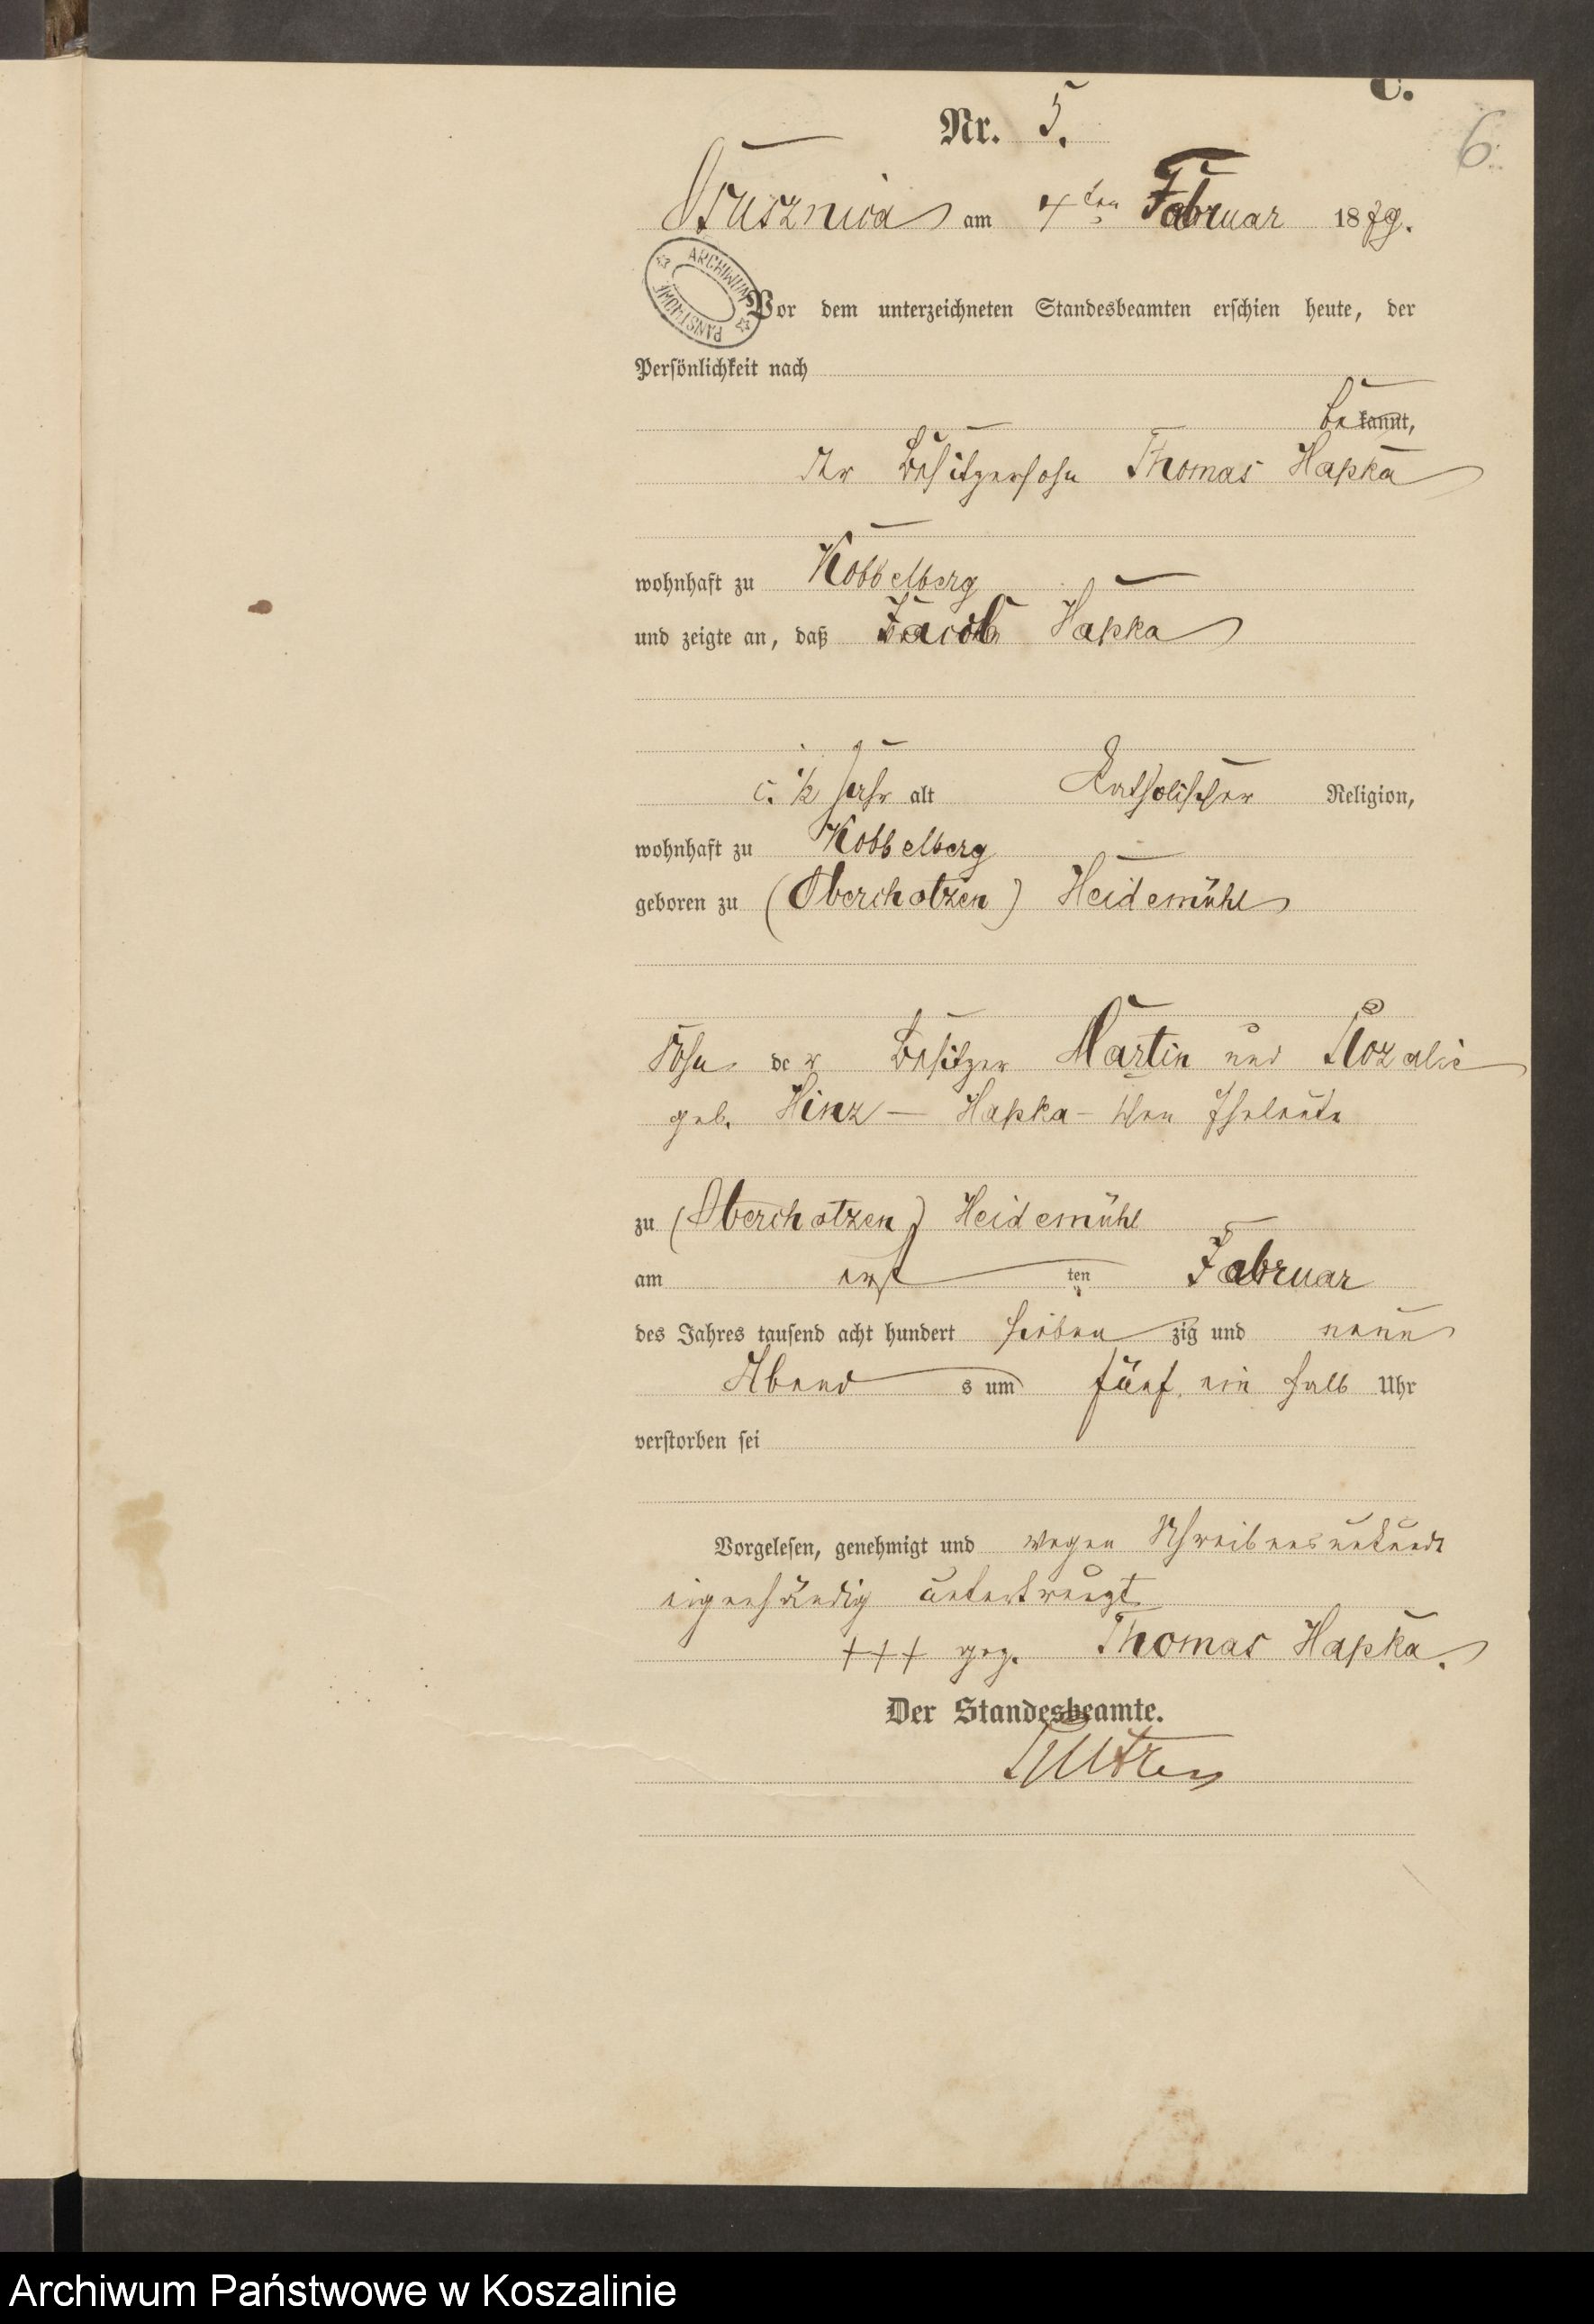 C.
Nr. 5.
6.
Stusznica am 4ten Februar 1879.
ARCHIWUM PAŃSTWOWE
Vor dem unterzeichneten Standesbeamten erschien heute, der
Persönlichkeit nach
bekannt,
der Besitzersohn Thomas Hapka
wohnhaft zu Kobbelberg
und zeigte an, daß Jacob Hapka
c. 1/2 Jahr alt Katholischer Religion,
wohnhaft zu Kobbelberg
geboren zu (Oberchotzen) Heidemühl
Sohn der Besitzer Martin und Rozalie
geb. Hinz — Hapka-schen Eheleute
zu (Oberchotzen) Heidemühl
am ersten Februar
des Jahres tausend acht hundert siebenzig und neun
Abends um fünf ein halb Uhr
verstorben sei
Vorgelesen, genehmigt und wegen Schreibensunkunde
eigenhändig unterkreuzt
+++ gez. Thomas Hapka.
Der Standesbeamte.
Archiwum Państwowe w Koszalinie